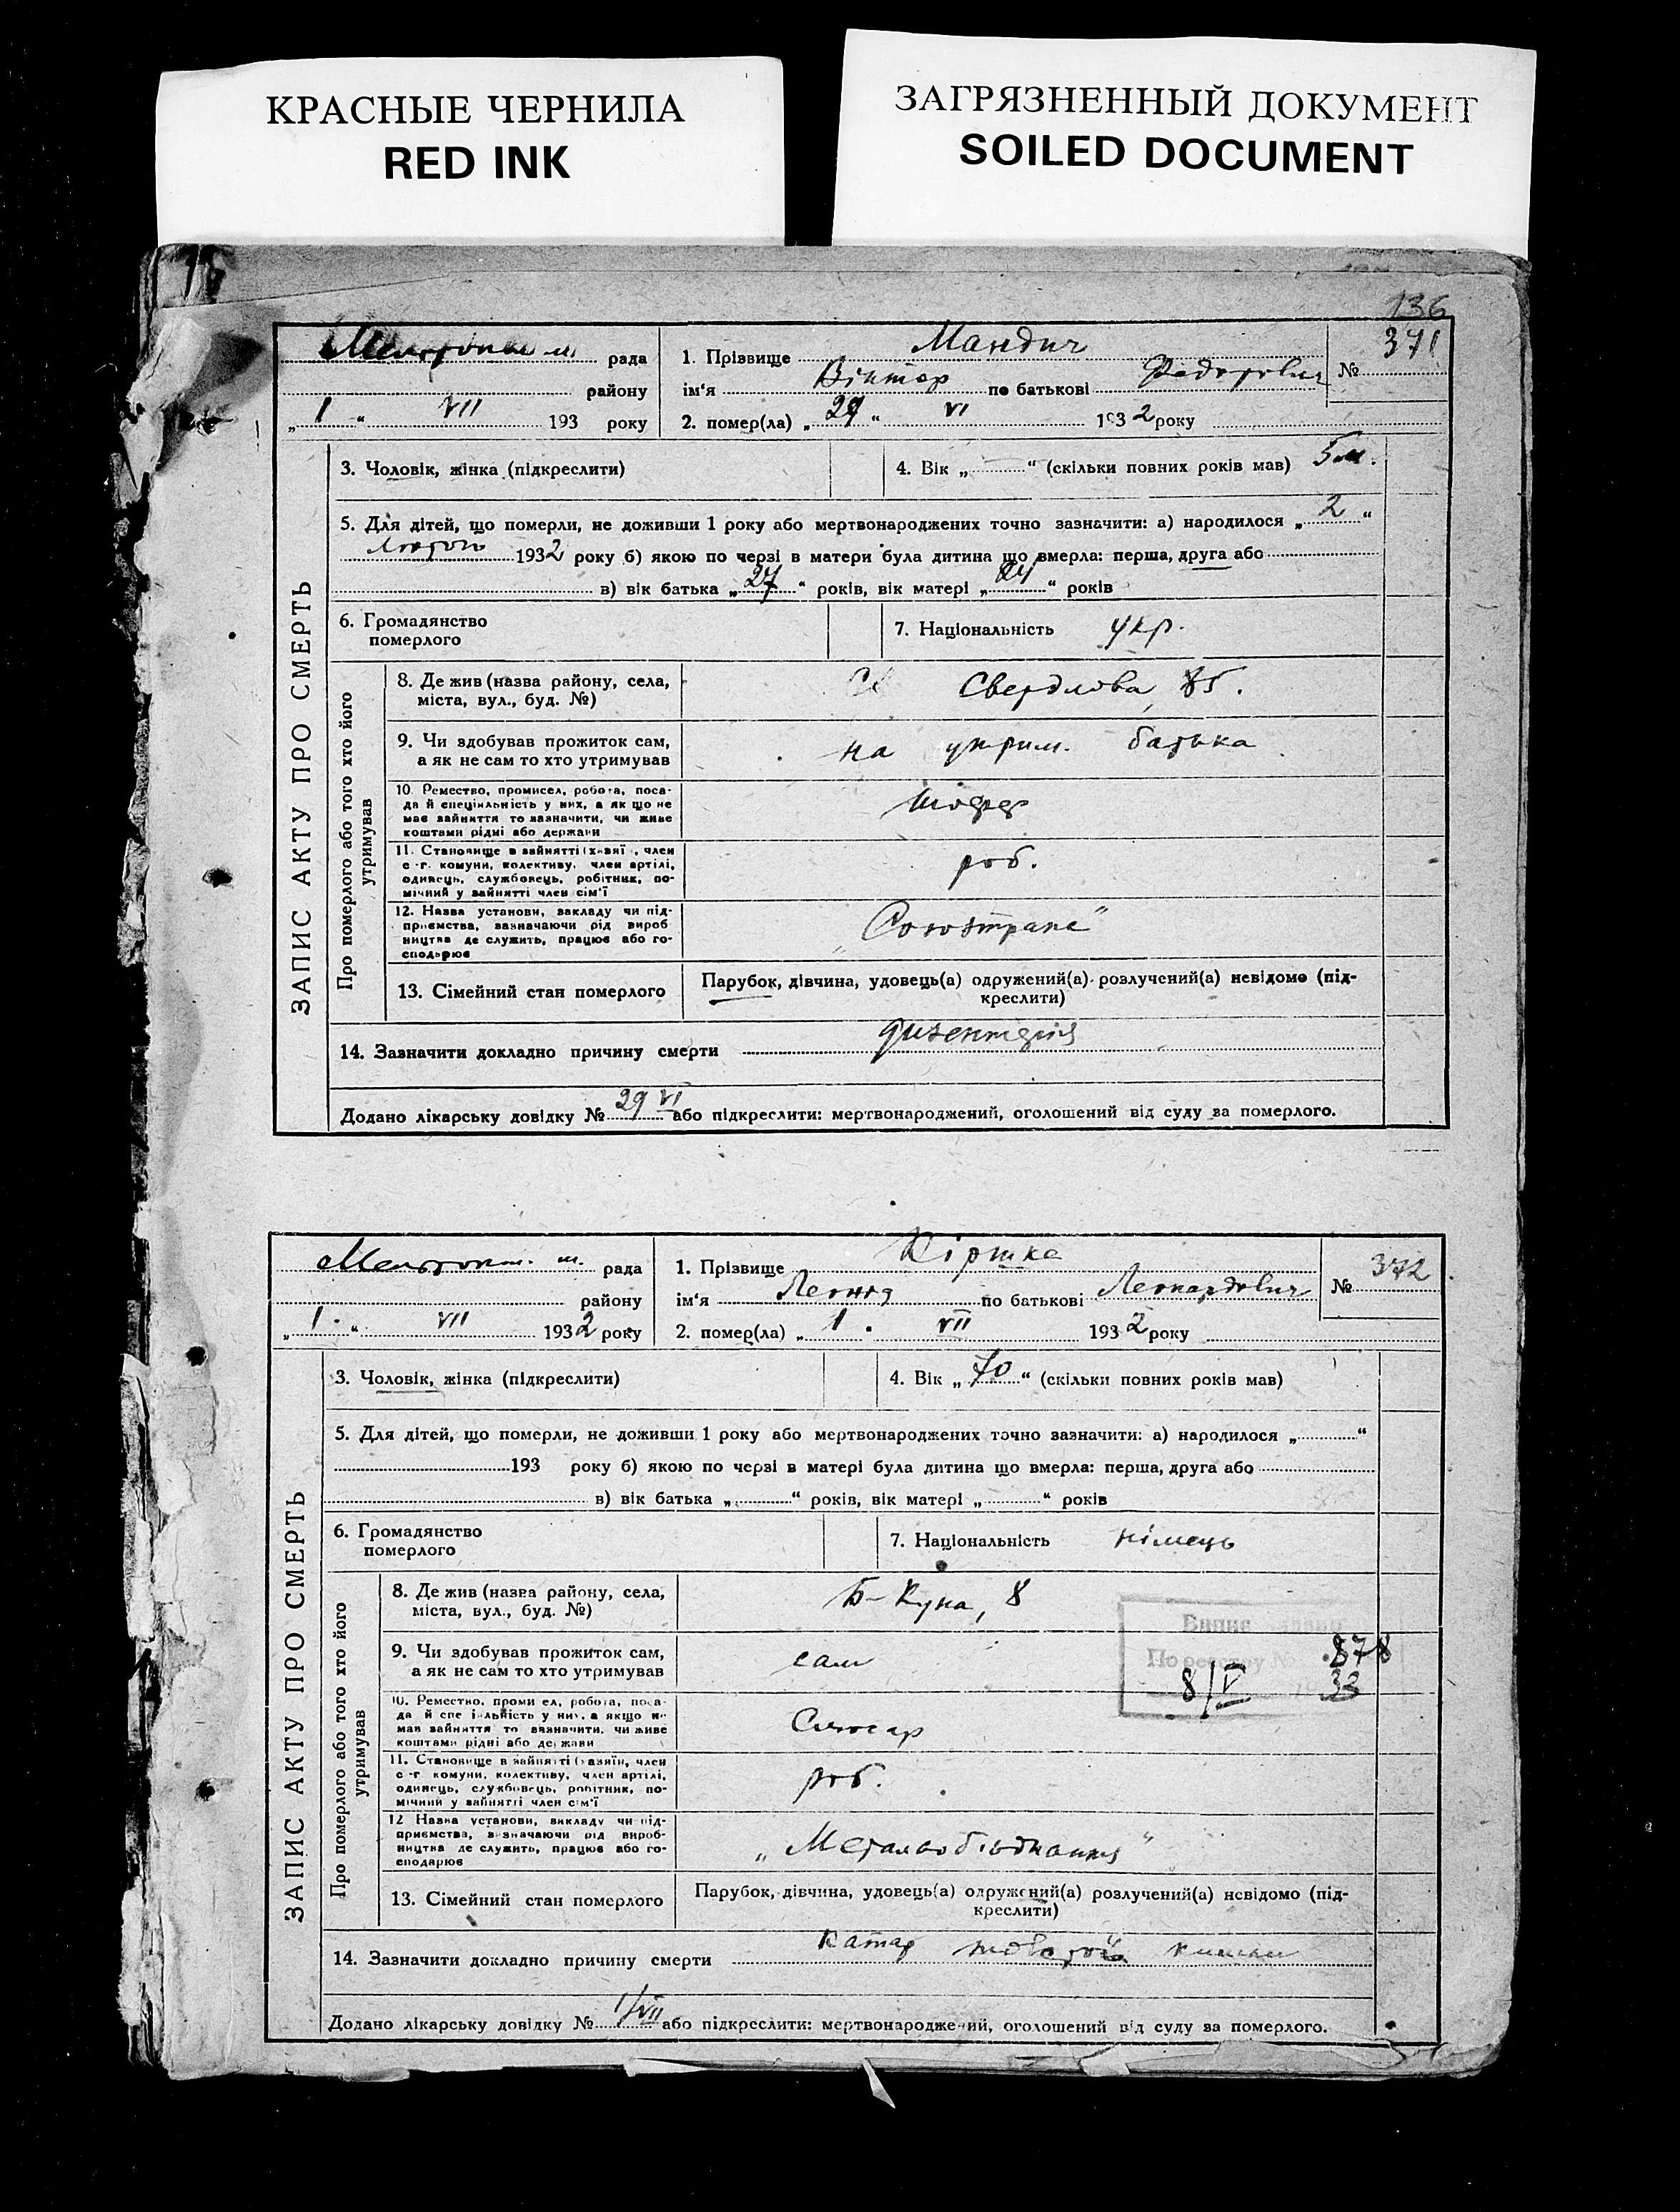 КРАСНЫЕ ЧЕРНИЛА
RED INK
ЗАГРЯЗНЕННЫЙ ДОКУМЕНТ
SOILED DOCUMENT
136
рада
1. Прізвище Мандич
№ 371
району
ім'я Віктор по батькові Федорович
„ 1 “ VII 193 року
2. помер(ла) „ 29 “ VI 1932 року
ЗАПИС АКТУ ПРО СМЕРТЬ
3. Чоловік, жінка (підкреслити)
4. Вік „ “ (скільки повних років мав) 5 м.
5. Для дітей, що померли, не доживши 1 року або мертвонароджених точно зазначити: а) народилося „ 2 “
лютого 1932 року б) якою по черзі в матери була дитина що вмерла: перша, друга або
в) вік батька „ 27 “ років, вік матері „ 24 “ років
6. Громадянство
померлого
7. Національність укр.
Про померлого або того хто його
утримував
8. Де жив (назва району, села,
міста, вул., буд. №)
Свердлова, 85.
9. Чи здобував прожиток сам,
а як не сам то хто утримував
на утрим. батька
10. Ремество, промисел, робота, поса-
да й спеціяльність у них, а як що не
має зайняття то зазначити, чи живе
коштами рідні або держави
шофер
11. Становище в зайнятті (хазяї , член
с-г. комуни, колективу, член артілі,
одинець, службовець, робітник, по-
мічний у зайнятті член сім'ї
роб.
12. Назва установи, закладу чи під-
приємства, зазначаючи рід вироб
ництва де служить, працює або го-
сподарює
„Союзтранс“
13. Сімейний стан померлого
Парубок, дівчина, удовець(а) одружений(а) розлучений(а) невідомо (під-
креслити)
14. Зазначити докладно причину смерти дизентерія
Додано лікарську довідку № 29 VI або підкреслити: мертвонароджений, оголошений від суду за померлого.
рада
1. Прізвище Кіршке
№ 372
району
ім'я Леонід по батькові Леонардович
„ 1 “ VII 1932 року
2. помер(ла) „ 1 “ VII 1932 року
ЗАПИС АКТУ ПРО СМЕРТЬ
3. Чоловік, жінка (підкреслити)
4. Вік „ 70 “ (скільки повних років мав)
5. Для дітей, що померли, не доживши 1 року або мертвонароджених точно зазначити: а) народилося „ “
193 року б) якою по черзі в матері була дитина що вмерла: перша, друга або
в) вік батька „ “ років, вік матері „ “ років
6. Громадянство
померлого
7. Національність німець
Про померлого або того хто його
утримував
8. Де жив (назва району, села,
міста, вул., буд. №)
Б-Куна, 8
Випис
По реєстру № 878
8/V 33
9. Чи здобував прожиток сам,
а як не сам то хто утримував
сам
10. Ремество, проми ел, робота, поса-
да й спе і льність у них, а якщо не
має зайняття то зазначити, чи живе
коштами рідні або держави
Слюсар
11. Становище в зайнятті (хазяїн, член
с-г комуни, колективу, член артілі,
одинець, службовець, робітник, по-
мічний у зайнятті член сім'ї
роб.
12 Назва установи, закладу чи під-
приємства, зазначаючи рід вироб-
ництва де служить, працює або го-
сподарює
„Металооб'єднання“
13. Сімейний стан померлого
Парубок, дівчина, удовець(а) одружений(а) розлучений(а) невідомо (під-
креслити)
14. Зазначити докладно причину смерти катар товстой кишки
Додано лікарську довідку № 1/VII або підкреслити: мертвонароджений, оголошений від суду за померлого.